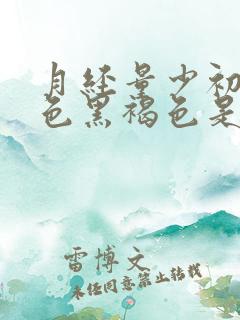 月经量少初
色黑褐色是
雷博文
未经同意禁止转载